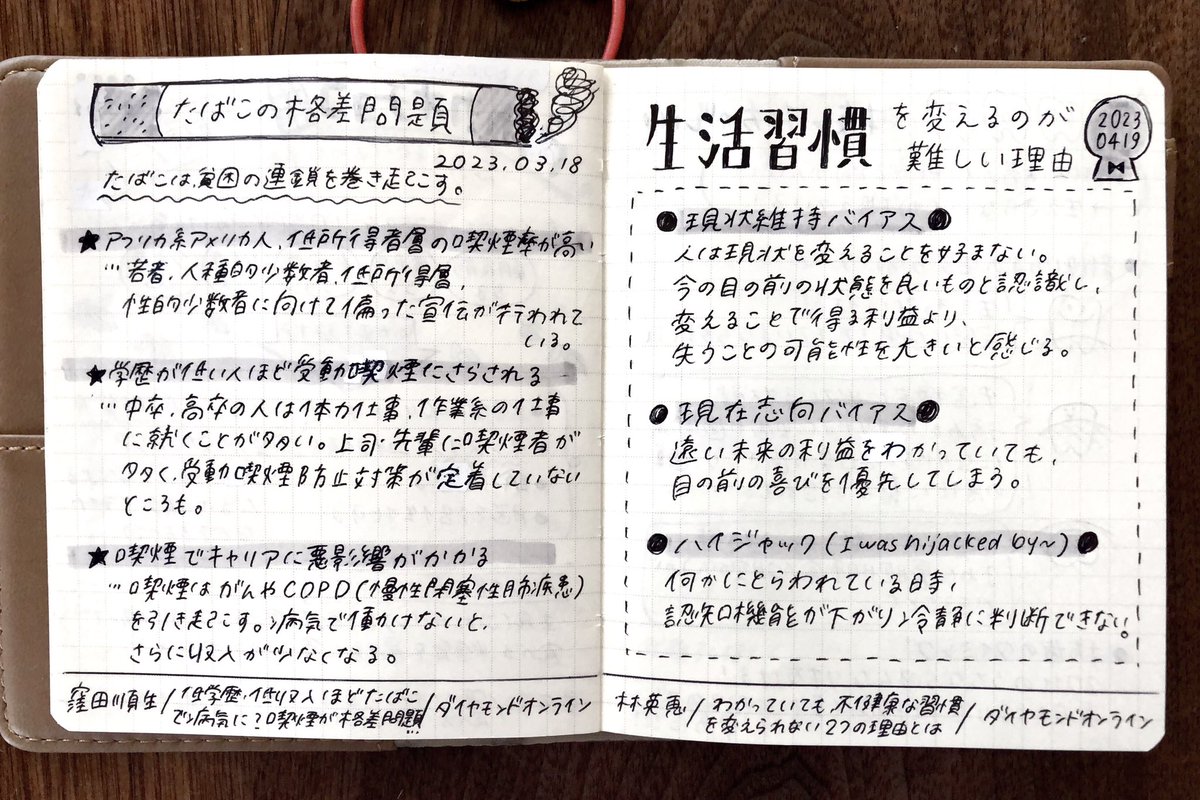 たばこの格差問題
2023.03.18
たばこは、貧困の連鎖を巻き起こす。
★アフリカ系アメリカ人、低所得者層の喫煙率が高い
…若者、人種的少数者、低所得層、
性的少数者に向けて偏った宣伝が行われて
いる。
★学歴が低い人ほど受動喫煙にさらされる
…中卒、高卒の人は体力仕事、作業系の仕事
に就くことが多い。上司・先輩に喫煙者が
多く、受動喫煙防止対策が定着していない
ところも。
★喫煙でキャリアに悪影響がかかる
…喫煙はがんやCOPD(慢性閉塞性肺疾患)
を引き起こす。病気で働けないと、
さらに収入が少なくなる。
窪田順生/低学歴、低収入ほどたばこ
で病気に?喫煙が格差問題/ダイヤモンドオンライン
生活習慣を変えるのが
難しい理由
2023
0419
●現状維持バイアス●
人は現状を変えることを好まない。
今の目の前の状態を良いものと認識し、
変えることで得る利益より、
失うことの可能性を大きいと感じる。
●現在志向バイアス●
遠い未来の利益をわかっていても、
目の前の喜びを優先してしまう。
●ハイジャック(I was hijacked by~)●
何かにとらわれている時、
認知機能が下がり冷静に判断できない。
林英恵/わかっていても、不健康な習慣
を変えられない2つの理由とは/ダイヤモンドオンライン